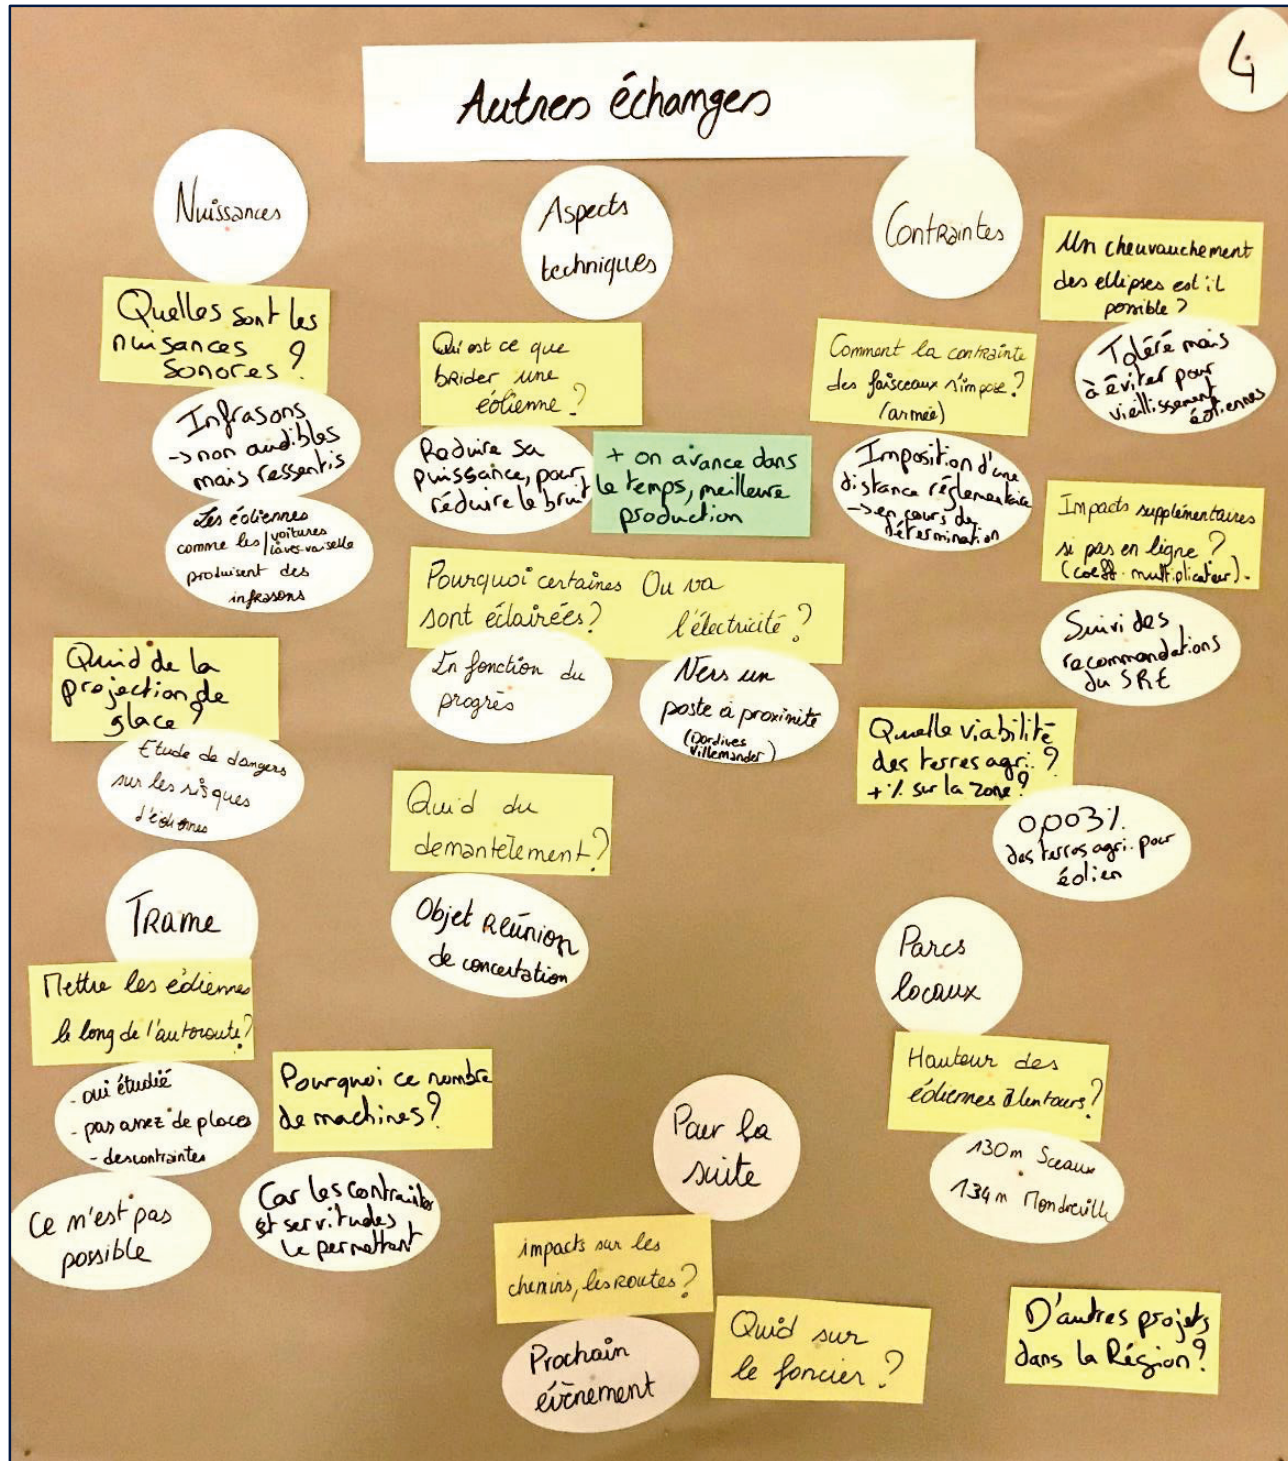 Autres échanges
4
Nuissances
Quelles sont les
nuisances
sonores ?
Infrasons
-> non audibles
mais ressentis
Les éoliennes
comme les voitures / laves-vaisselle
produisent des
infrasons
Quid de la
projection de
glace ?
Etude de dangers
sur les risques
d'éoliennes
Trame
Mettre les éoliennes
le long de l'autoroute ?
- oui étudié
- pas assez de places
- des contraintes
Ce n'est pas
possible
Pourquoi ce nombre
de machines ?
Car les contraintes
et servitudes
le permettant
Aspects
techniques
Qu'est ce que
brider une
éolienne ?
Réduire sa
puissance, pour
réduire le bruit
+ on avance dans
le temps, meilleure
production
Pourquoi certaines
sont éclairées ?
En fonction du
progrès
Ou va
l'électricité ?
Vers un
poste à proximité
(Dordives
Villemander)
Quid du
demantèlement ?
Objet Réunion
de concertation
Contraintes
Comment la contrainte
des faisceaux s'impose ?
(armée)
Imposition d'une
distance réglementaire
-> en cours de
détermination
Un cheuvauchement
des ellipses est il
possible ?
Toléré mais
à éviter pour
vieillissement
éoliennes
Impacts supplémentaires
si pas en ligne ?
(coeff. multiplicateur).
Suivi des
recommandations
du SRE
Quelle viabilité
des terres agri. ?
+ % sur la zone ?
0,003 %
des terres agri. pour
éolien
Parcs
locaux
Hauteur des
éoliennes alentours ?
130m Sceaux
134m Mondreville
D'autres projets
dans la Région ?
Pour la
suite
impacts sur les
chemins, les routes ?
Prochain
évènement
Quid sur
le foncier ?